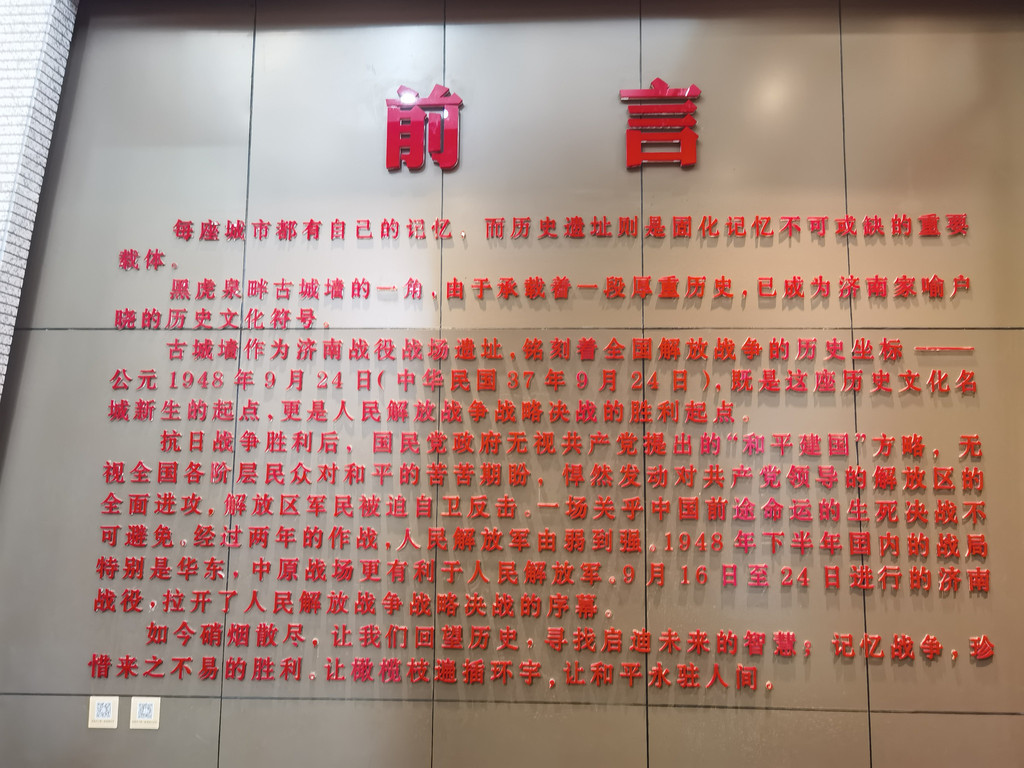 前言
每座城市都有自己的记忆，而历史遗址则是固化记忆不可或缺的重要
载体。
黑虎泉畔古城墙的一角，由于承载着一段厚重历史，已成为济南家喻户
晓的历史文化符号。
古城墙作为济南战役战场遗址，铭刻着全国解放战争的历史坐标——
公元1948年9月24日（中华民国37年9月24日），既是这座历史文化名
城新生的起点，更是人民解放战争战略决战的胜利起点。
抗日战争胜利后，国民党政府无视共产党提出的“和平建国”方略，无
视全国各阶层民众对和平的苦苦期盼，悍然发动对共产党领导的解放区的
全面进攻，解放区军民被迫自卫反击。一场关乎中国前途命运的生死决战不
可避免。经过两年的作战，人民解放军由弱到强。1948年下半年国内的战局
特别是华东，中原战场更有利于人民解放军。9月16日至24日进行的济南
战役，拉开了人民解放战争战略决战的序幕。
如今硝烟散尽，让我们回望历史，寻找启迪未来的智慧；记忆战争，珍
惜来之不易的胜利。让橄榄枝遍插环宇，让和平永驻人间。